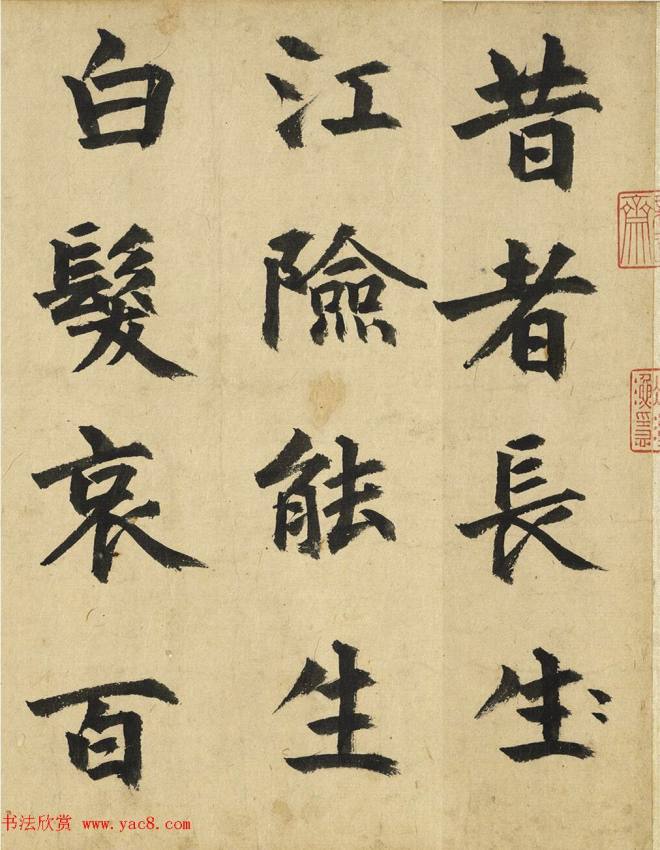 昔者長生
江險能生
白髮哀百
齋
书法欣赏 www.yac8.com